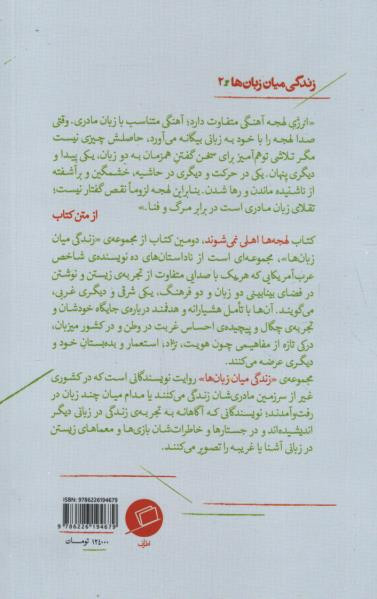 زندگی میان زبان‌ها ۲
«انرژیِ لهجه آهنگی متفاوت دارد؛ آهنگی متناسب با زبان مادری. وقتی
صدا لهجه را با خود به زبانی بیگانه می‌آورد، حاصلش چیزی نیست
مگر تلاشی توهم‌آمیز برای سخن گفتن همزمان به دو زبان، یکی پیدا و
دیگری پنهان. یکی در حرکت و دیگری در حاشیه، خشمگین و برآشفته
از ناشنیده ماندن و رها شدن. بنابراین لهجه لزوماً نقص گفتار نیست؛
تقلای زبان مادری است در برابر مرگ و فنا.»
از متن کتاب
کتاب لهجه‌ها اهلی نمی‌شوند، دومین کتاب از مجموعه‌ی «زندگی میان
زبان‌ها»، مجموعه‌ای است از ناداستان‌های ده نویسنده‌ی شاخص
عرب‌آمریکایی که هریک با صدایی متفاوت از تجربه‌ی زیستن و نوشتن
در فضای بینابینی دو زبان و دو فرهنگ، یکی شرقی و دیگری غربی،
می‌گویند. آن‌ها با تأمل هشیارانه و هدفمند درباره‌ی جایگاه خودشان و
تجربه‌ی چگال و پیچیده‌ی احساس غربت در وطن و در کشور میزبان،
درکی تازه از مفاهیمی چون هویت، نژاد، استعمار و بده‌بستان خود و
دیگری عرضه می‌کنند.
مجموعه‌ی «زندگی میان زبان‌ها» روایت نویسندگانی است که در کشوری
غیر از سرزمین مادری‌شان زندگی می‌کنند یا مدام میان چند زبان در
رفت‌وآمدند؛ نویسندگانی که آگاهانه به تجربه‌ی زندگی در زبانی دیگر
اندیشیده‌اند و در جستارها و خاطراتشان بازی‌ها و معماهای زیستن
در زبانی آشنا یا غریبه را تصویر می‌کنند.
ISBN: 9786226194679
9 786226 194679
۱۲۴۰۰۰ تومــان
اطراف